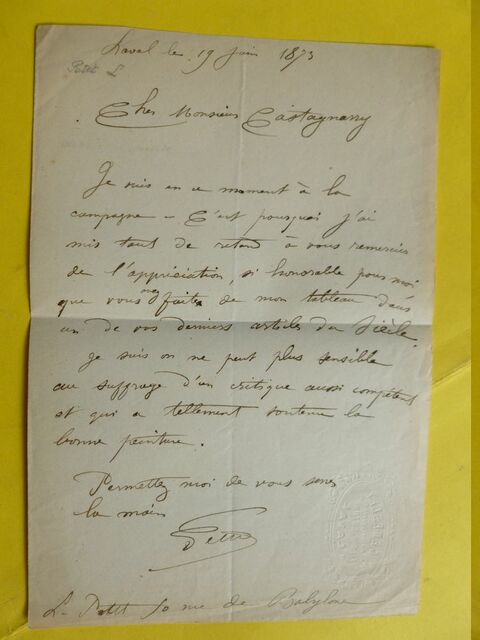 Laval le 19 juin 1873
Petit L
Cher Monsieur Castagnary
Je suis en ce moment à la
campagne - C'est pourquoi j'ai
mis tant de retard à vous remercier
de l'appréciation, si honorable pour moi
que vous avez faite de mon tableau dans
un de vos derniers articles du Siècle.
Je suis on ne peut plus sensible
au suffrage d'un critique aussi compétent
et qui a tellement soutenu la
bonne peinture.
Permettez moi de vous serrer
la main
Petit
L. Petit 50 rue de Babylone